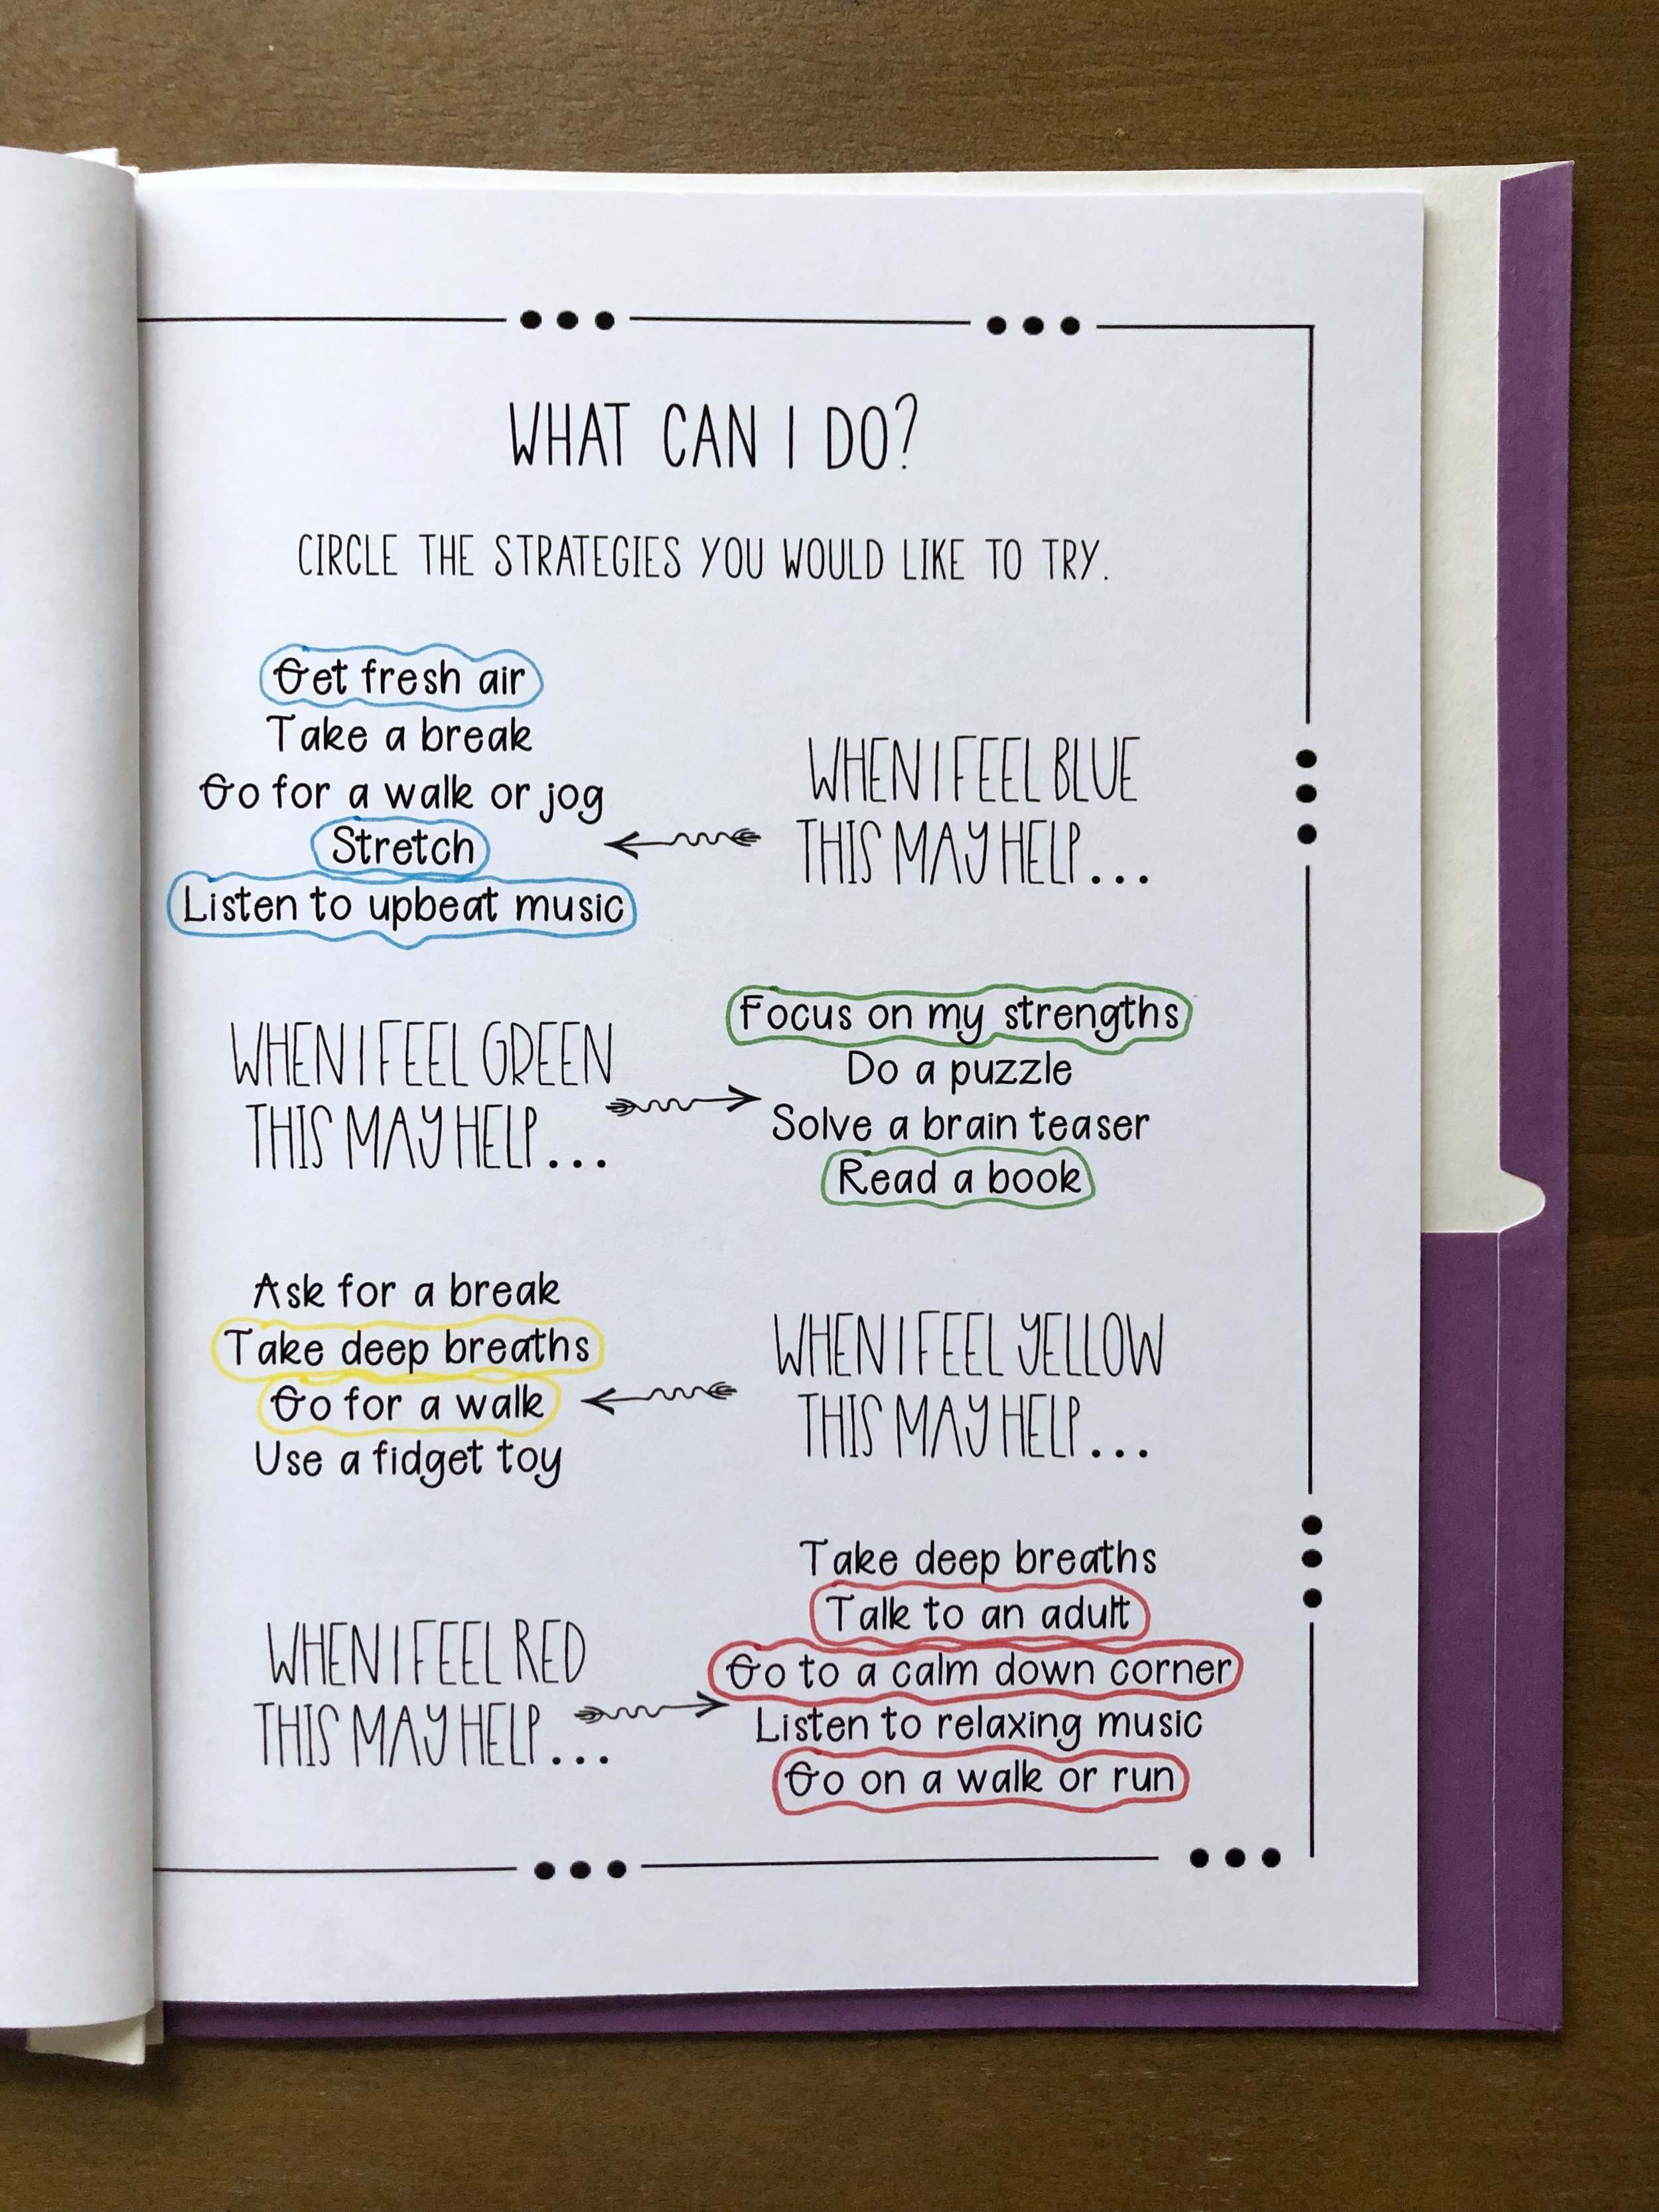 WHAT CAN I DO?
CIRCLE THE STRATEGIES YOU WOULD LIKE TO TRY.
Get fresh air
Take a break
Go for a walk or jog
Stretch
Listen to upbeat music
WHEN I FEEL BLUE
THIS MAY HELP...
WHEN I FEEL GREEN
THIS MAY HELP...
Focus on my strengths
Do a puzzle
Solve a brain teaser
Read a book
Ask for a break
Take deep breaths
Go for a walk
Use a fidget toy
WHEN I FEEL YELLOW
THIS MAY HELP...
WHEN I FEEL RED
THIS MAY HELP...
Take deep breaths
Talk to an adult
Go to a calm down corner
Listen to relaxing music
Go on a walk or run